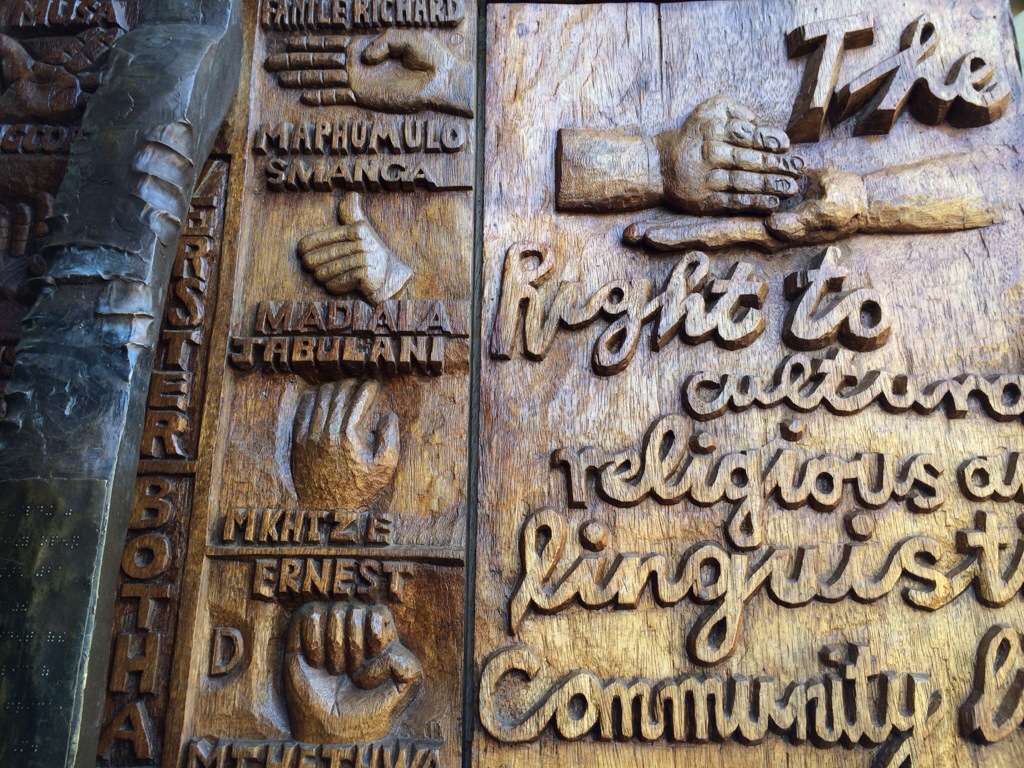 FANLE RICHARD
MAPHUMULO
SMANGA
MADLALA
JABULANI
MKHIZE
ERNEST
D
MTHETHWA
VERSTER BOTHA
The
Right to
cultura
religious a
linguisti
Community